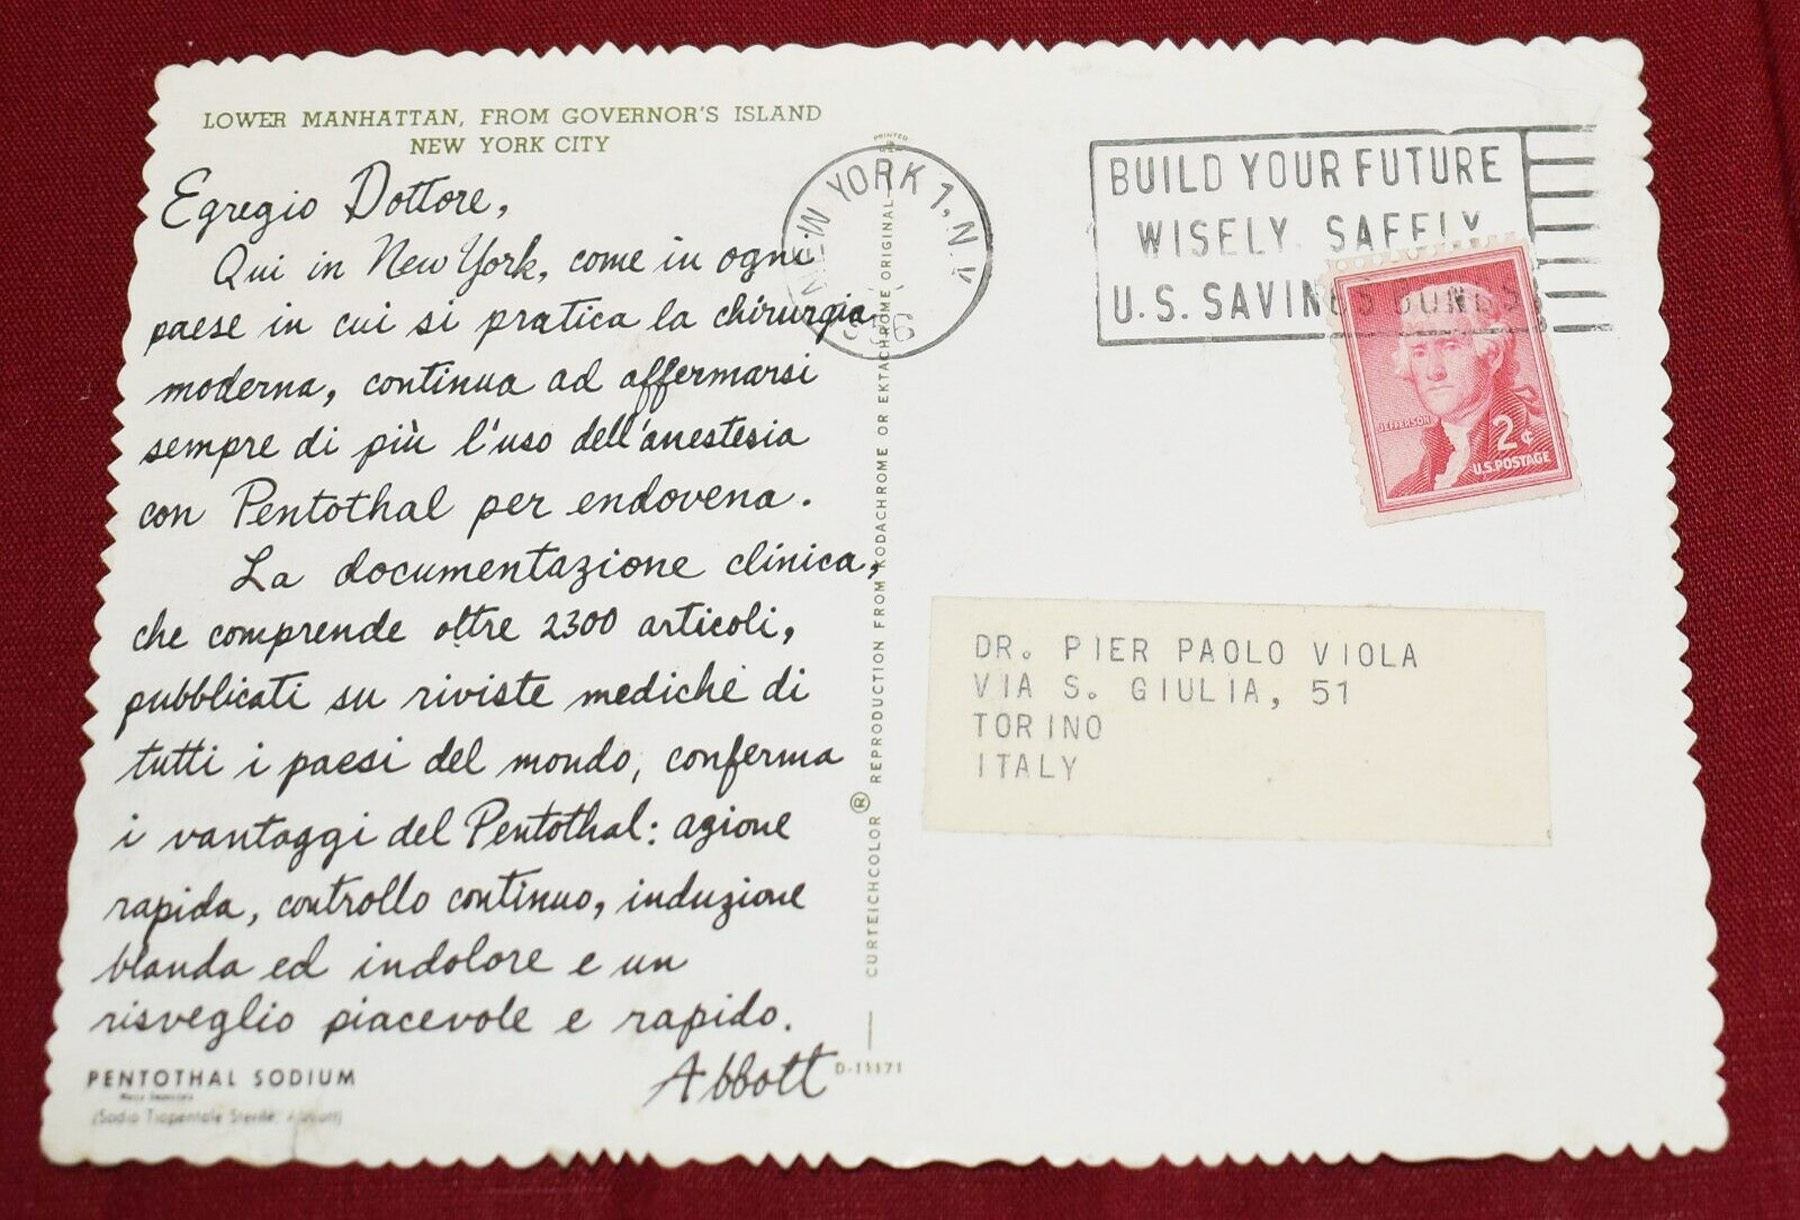 LOWER MANHATTAN, FROM GOVERNOR'S ISLAND
NEW YORK CITY
Egregio Dottore,
Qui in New York, come in ogni
paese in cui si pratica la chirurgia
moderna, continua ad affermarsi
sempre di più l'uso dell'anestesia
con Pentothal per endovena.
La documentazione clinica,
che comprende oltre 2300 articoli,
pubblicati su riviste mediche di
tutti i paesi del mondo, conferma
i vantaggi del Pentothal: azione
rapida, controllo continuo, induzione
blanda ed indolore e un
risveglio piacevole e rapido.
Abbott
PENTOTHAL SODIUM
(Sodio Tiopentale Sterile, Abbott)
D-11171
CURTEICHCOLOR® REPRODUCTION FROM KODACHROME OR EKTACHROME ORIGINAL
PRINTED
NEW YORK 1, N.Y.
BUILD YOUR FUTURE
WISELY SAFELY
U.S. SAVINGS BONDS
JEFFERSON
2¢
U.S. POSTAGE
DR. PIER PAOLO VIOLA
VIA S. GIULIA, 51
TORINO
ITALY